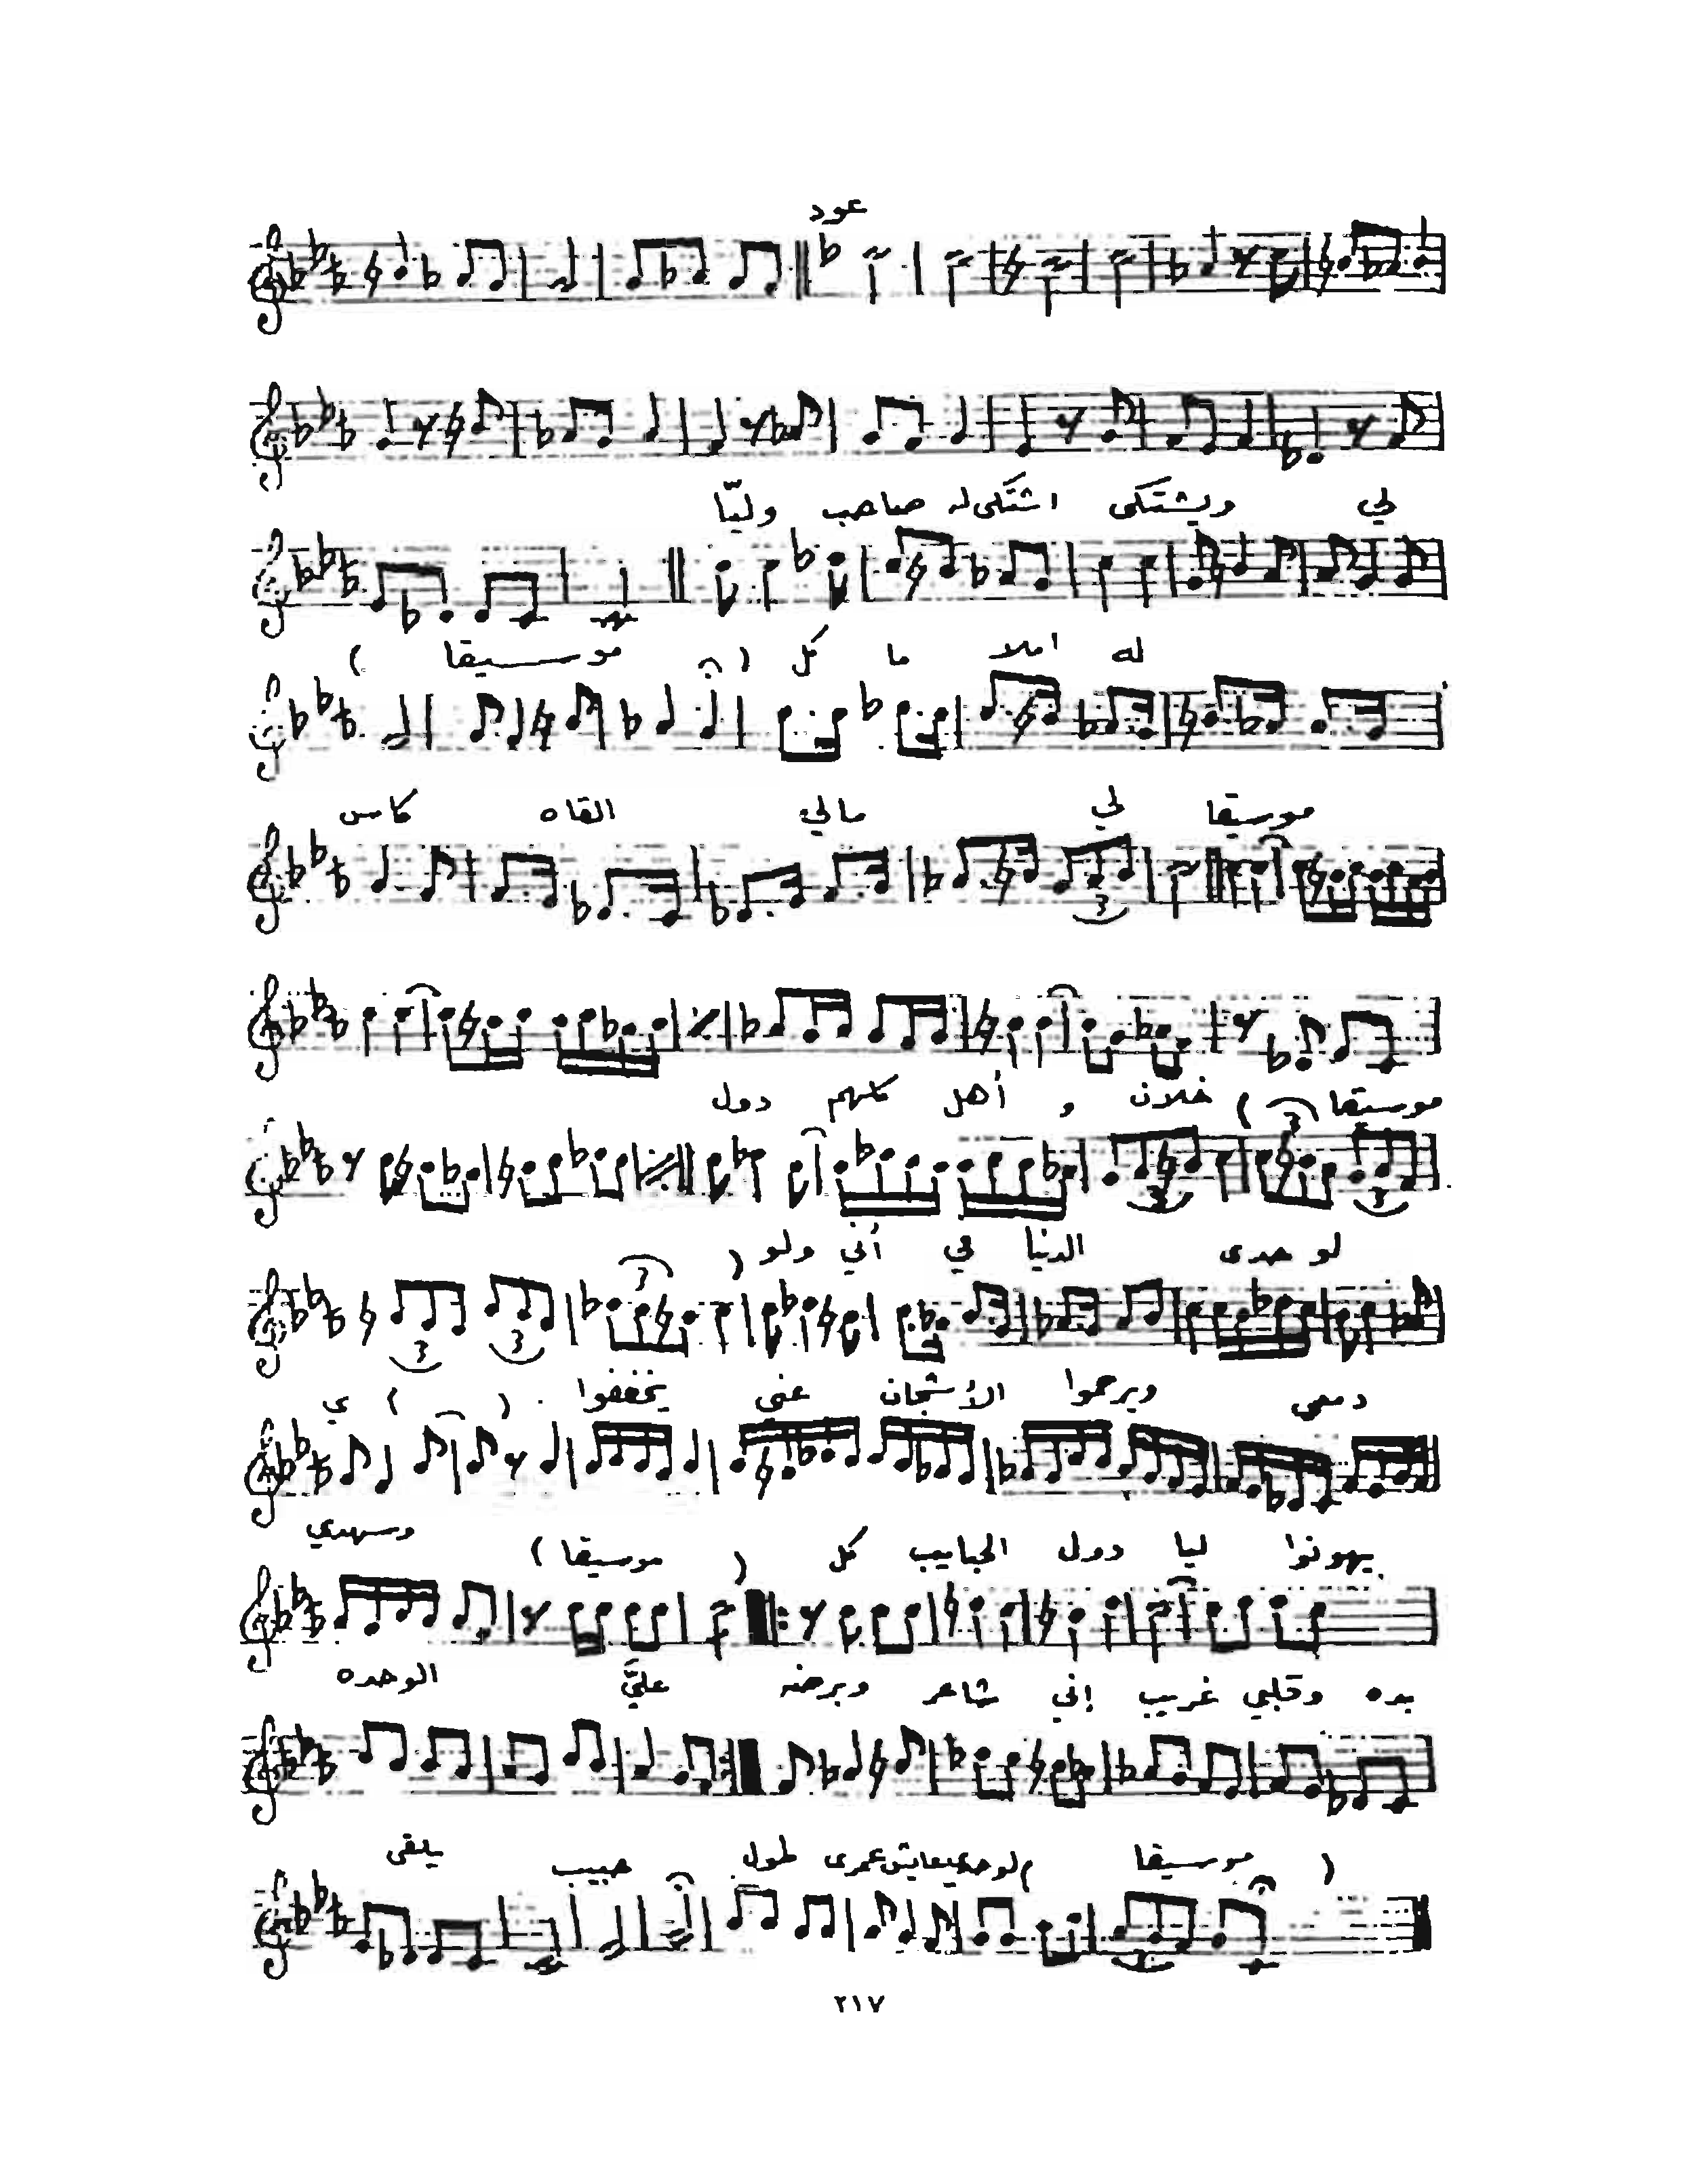 عود
لي ويشتكى اشتكى له صاحب وليّا
له املا ما كل ( موسيقا )
موسيقا لي مالي القاه كاس
موسيقا ) خلان و أهل كلهم دول
لو حدى الدنيا في أني ولو (
دمعي ويرحموا الأشجان عني يخففوا ( ) ي
وسهدي
يهونوا ليا دول الحبايب كل ( موسيقا )
بده وقلبي غريب إني شاعر وبرضه عليَّ الوحده
( موسيقا ) لوحدي عايش عمرى طول حبيب يلقى
٢١٧